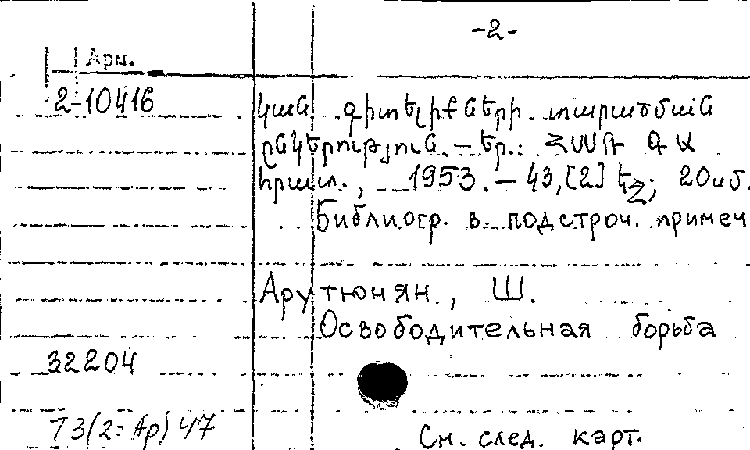 -2-
Арм.
2-10416
կան գիտելիքների տարածման
ընկերություն. – Եր.: ՀՍՍՌ ԳԱ
հրատ., 1953. – 43,[2] էջ; 20սմ.
Библиогр. в подстроч. примеч
Арутюнян, Ш.
Освободительная борьба
32204
Т3(2=Ар)47
См. след. карт.